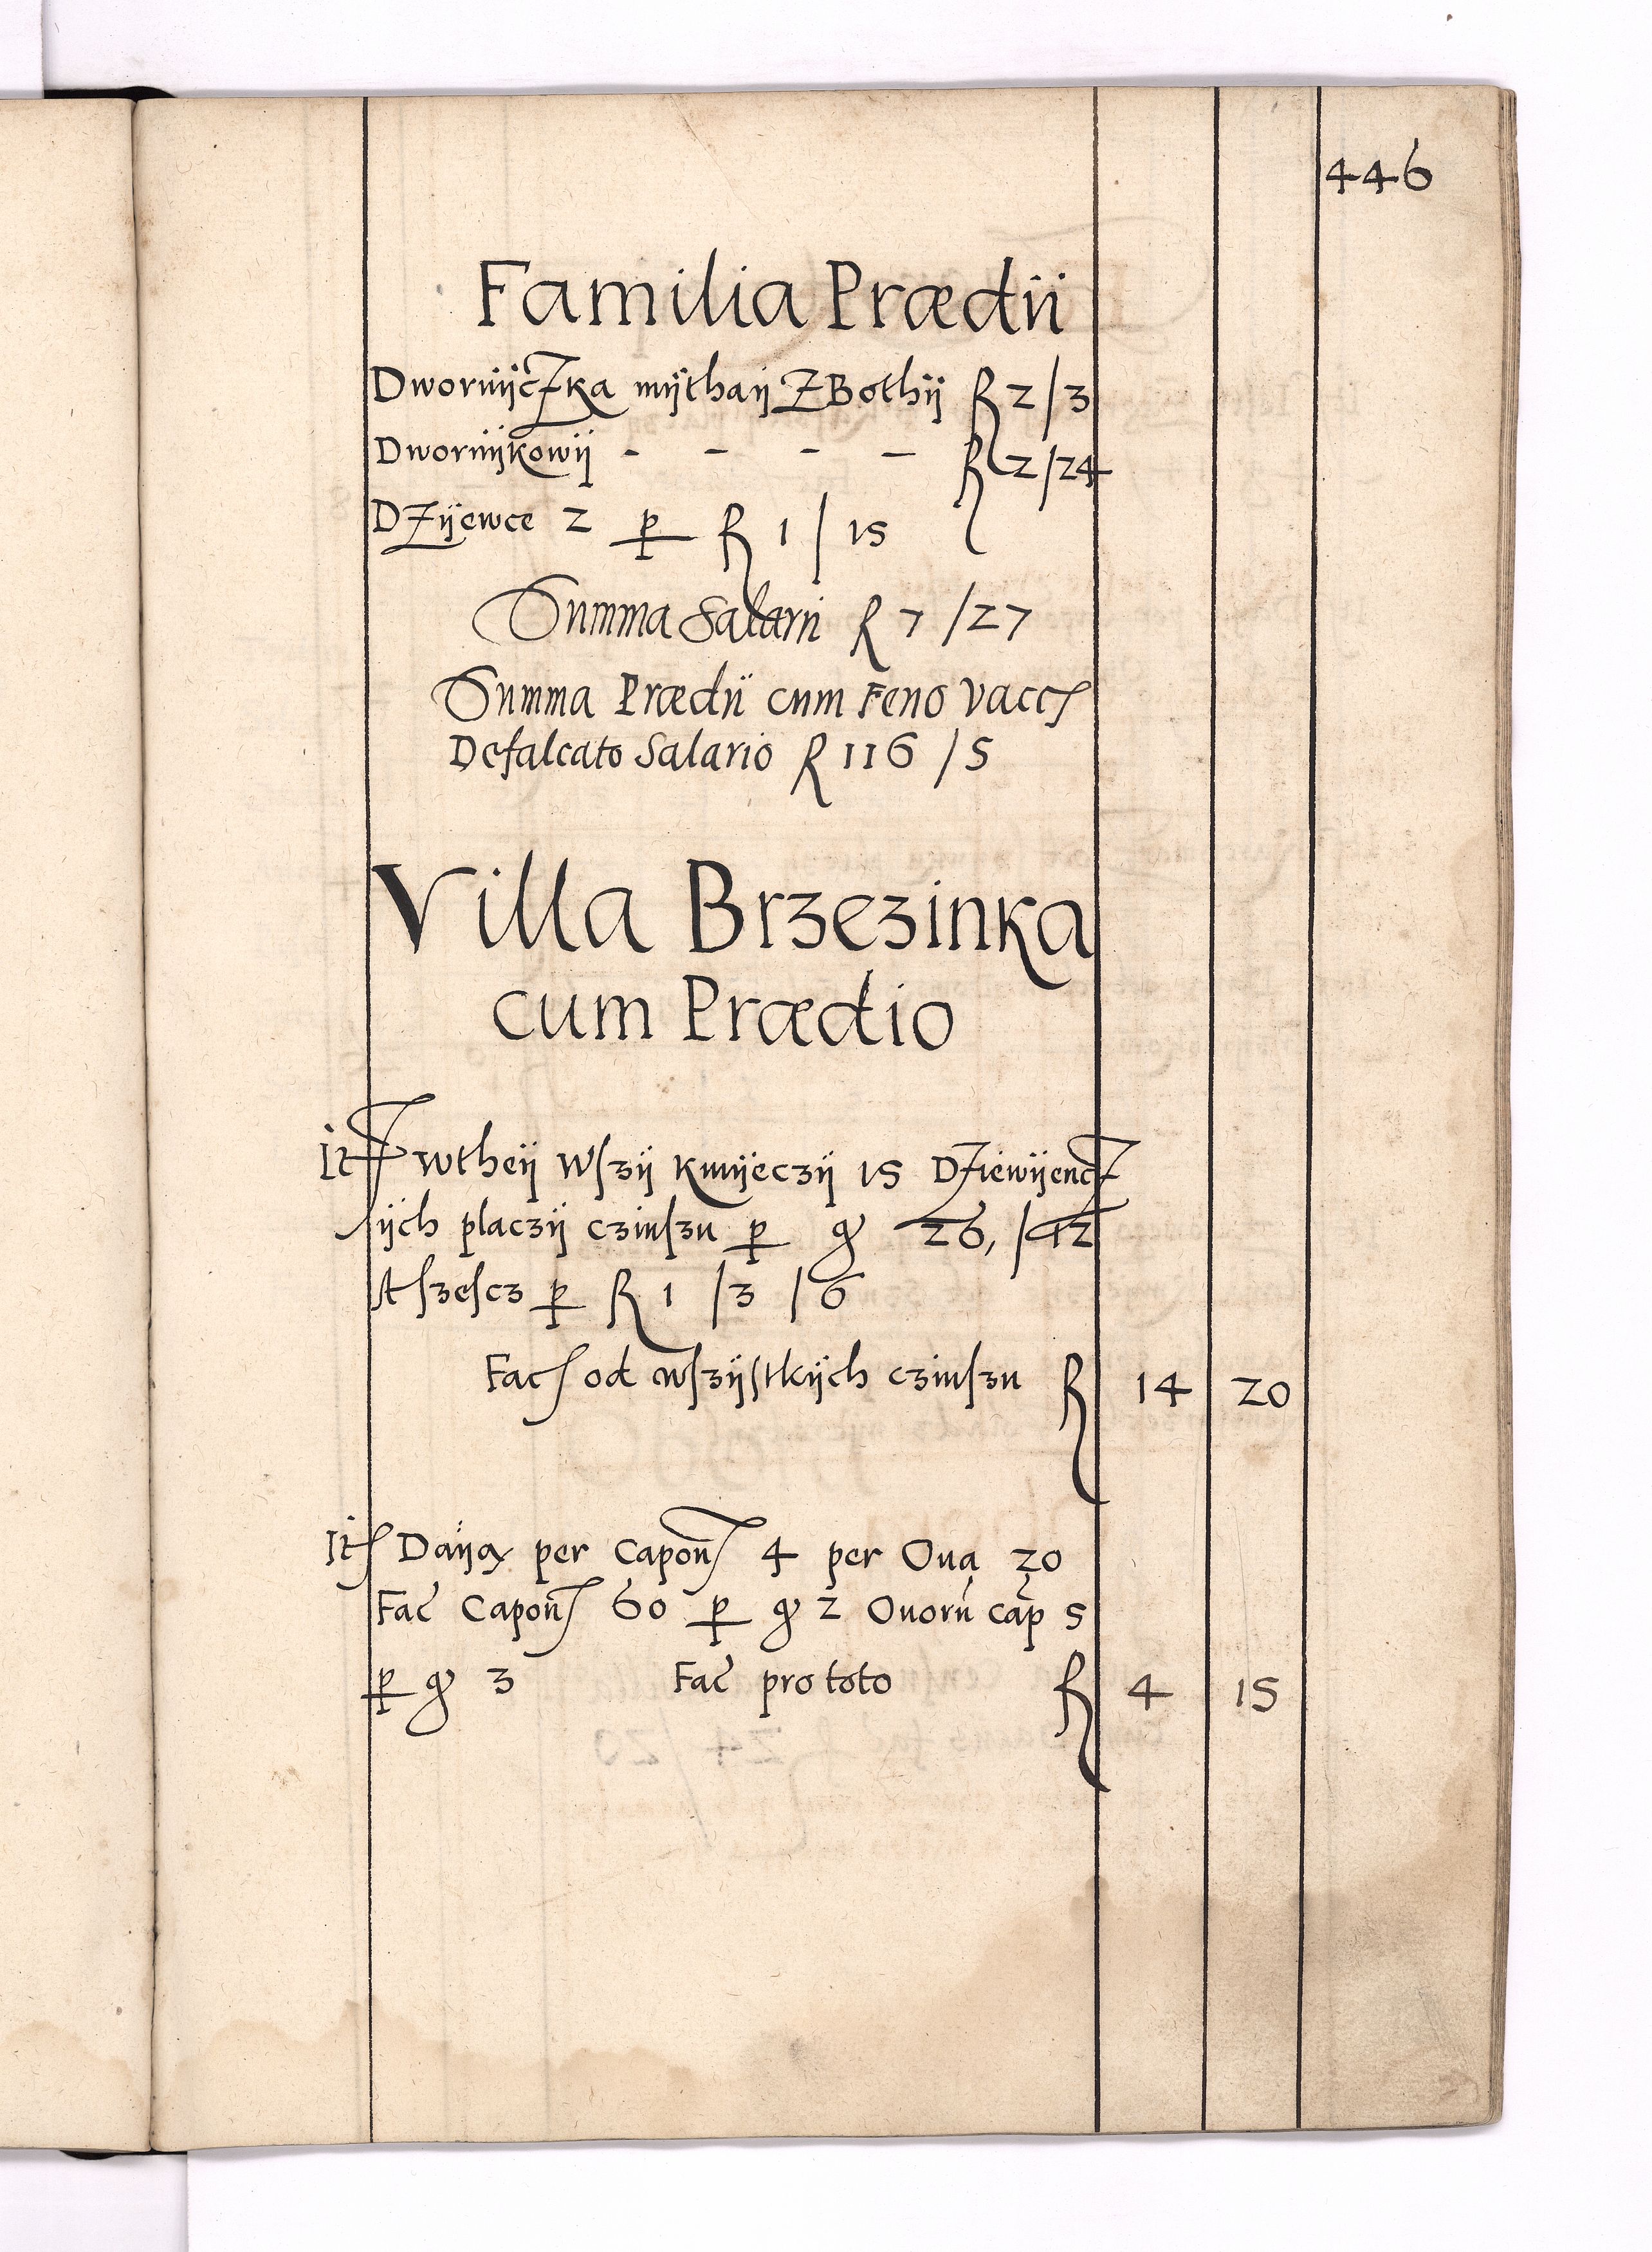 446
Familia Prædii
Dwornÿczka mÿthaÿ z Bothÿ R 2/3
Dwornÿkowÿ - - - - R 2/24
Dzÿewce 2 p R 1 / 15
Summa Salarii R 7 /27
Summa Prædii cum Feno vacc
Defalcato Salario R 116 /5
Villa Brzezinka
cum Prædio
It wtheÿ wſzÿ kmÿeczÿ 15 Dziewÿencz
ÿch placzÿ czinſzu p gr 26, /12
ſt ſzeſcz p R 1 /3 /6
Fac od wſzÿſtkÿch czinſzu R 14 20
It Daÿą per Capon 4 per Oua 20
Fac Capon 60 p gr 2 Ouorū cap 5
p gr 3 Fac pro toto R 4 15